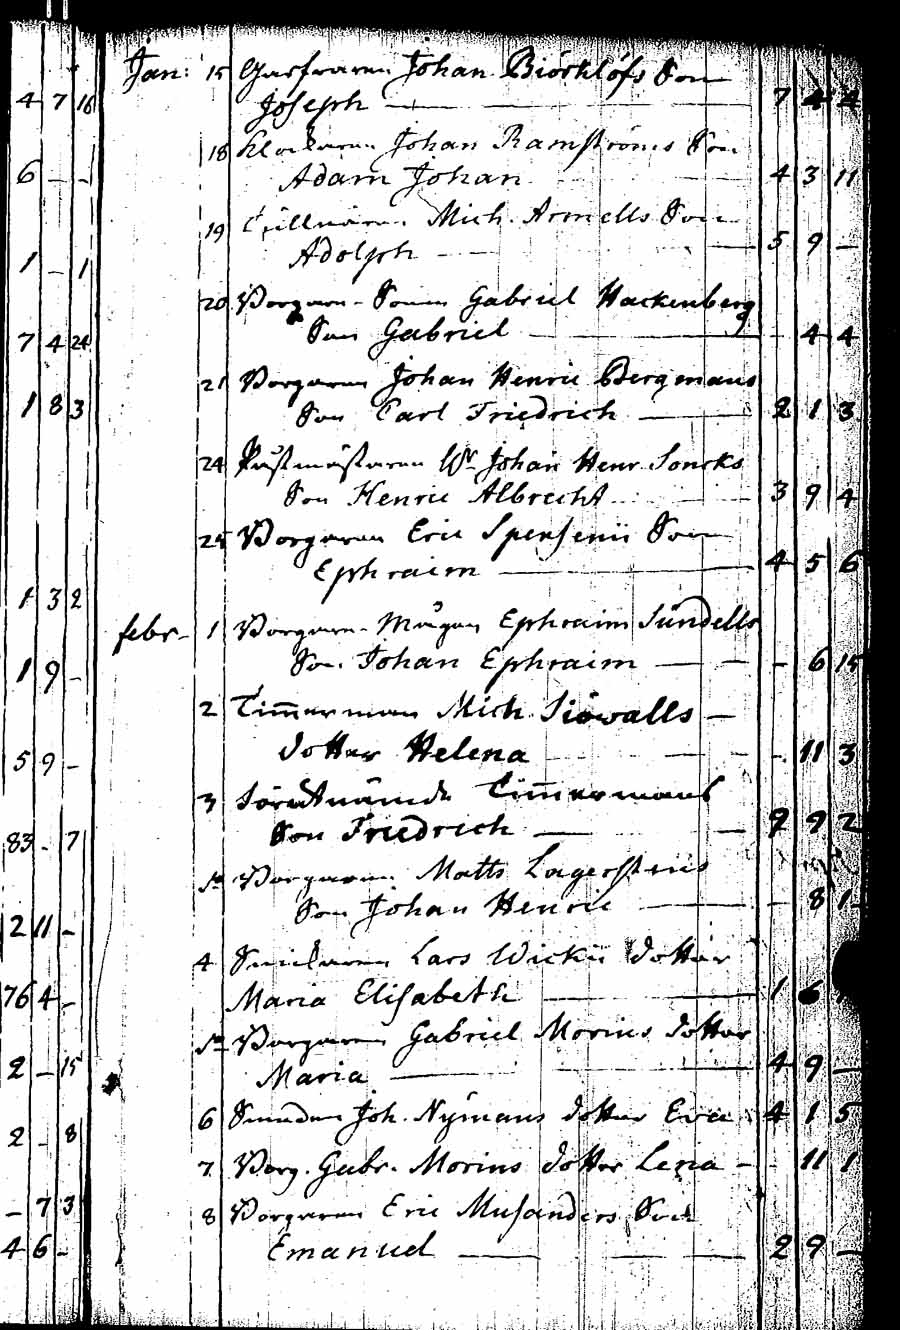 4 7 16
6 – –
1 – 1
7 4 24
1 8 3
1 3 2
1 9 –
5 9 –
83 – 7
2 11 –
76 4 –
2 – 15
2 – 8
– 7 3
4 6 –
Jan: 15 Garfvaren Johan Biörklöfs Son
Joseph — 7 4 4
18 Klockaren Johan Ramströms Son
Adam Johan 4 3 11
19 Mich. Armells Son
Adolph — 5 9 –
20 Borgare-Sonen Gabriel Hackenberg
Son Gabriel — 4 4
21 Borgaren Johan Henric Bergmans
Son Carl Friedrich — 2 1 3
24 Postmästaren Wr. Johan Henr. Soncks
Son Henric Albrecht 3 9 4
25 Borgaren Eric Spenserii Son
Ephraim — 4 5 6
febr. 1 Borgare-Mågen Ephraim Sundells
Son Johan Ephraim — – 6 15
2 Timmerman Mich. Siöwalls –
dotter Helena – 11 3
3 Timmermans
Son Friedrich — 9 2
Borgaren Matts Lagerstens
Son Johan Henric — – 8 1
4 Lars Wickii dotter
Maria Elisabeth — 1 6
Borgaren Gabriel Morins dotter
Maria — 4 9 –
6 Joh. Nÿmans dotter Eva 4 1 5
7 Borg. Gabr. Morins dotter Lena – – 11 1
8 Borgaren Eric Musanders Son
Emanuel — 2 9 –